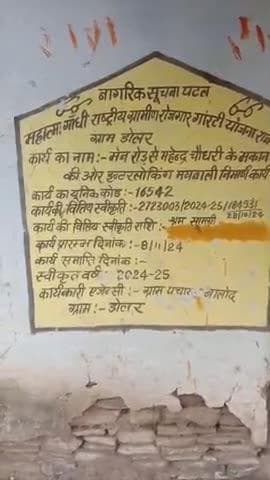 नागरिक सूचना पटल
महात्मा गांधी राष्ट्रीय ग्रामीण रोजगार गारंटी योजना
ग्राम डोलर
कार्य का नाम:- मेन रोड़ से महेन्द्र चौधरी के मकान
की ओर इन्टरलोकिंग मयनाली निर्माण कार्य
कार्य का यूनिक कोड:- 16542
कार्य की वित्तिय स्वीकृति:-2723003/2024-25/184531
28/10/24
कार्य की वित्तिय स्वीकृती राशि:- श्रम सामग्री
कार्य प्रारम्भ दिनांक:-8/11/24
कार्य समाप्ति दिनांक:-
स्वीकृत वर्ष 2024-25
कार्यकारी एजेन्सी:- ग्राम पंचायत नालोद
ग्राम:- डोलर